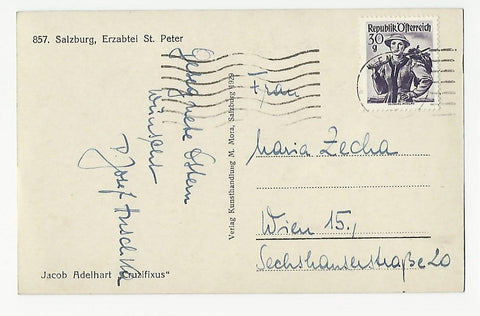 857. Salzburg, Erzabtei St. Peter
Gesegnete Ostern
wünscht
P. Josef
Jacob Adelhart "Cruzifixus"
Verlag Kunsthandlung M. Mora, Salzburg 1929
Republik Österreich
30
g
Frau
Maria Zecha
Wien 15.,
Sechshauserstraße 20